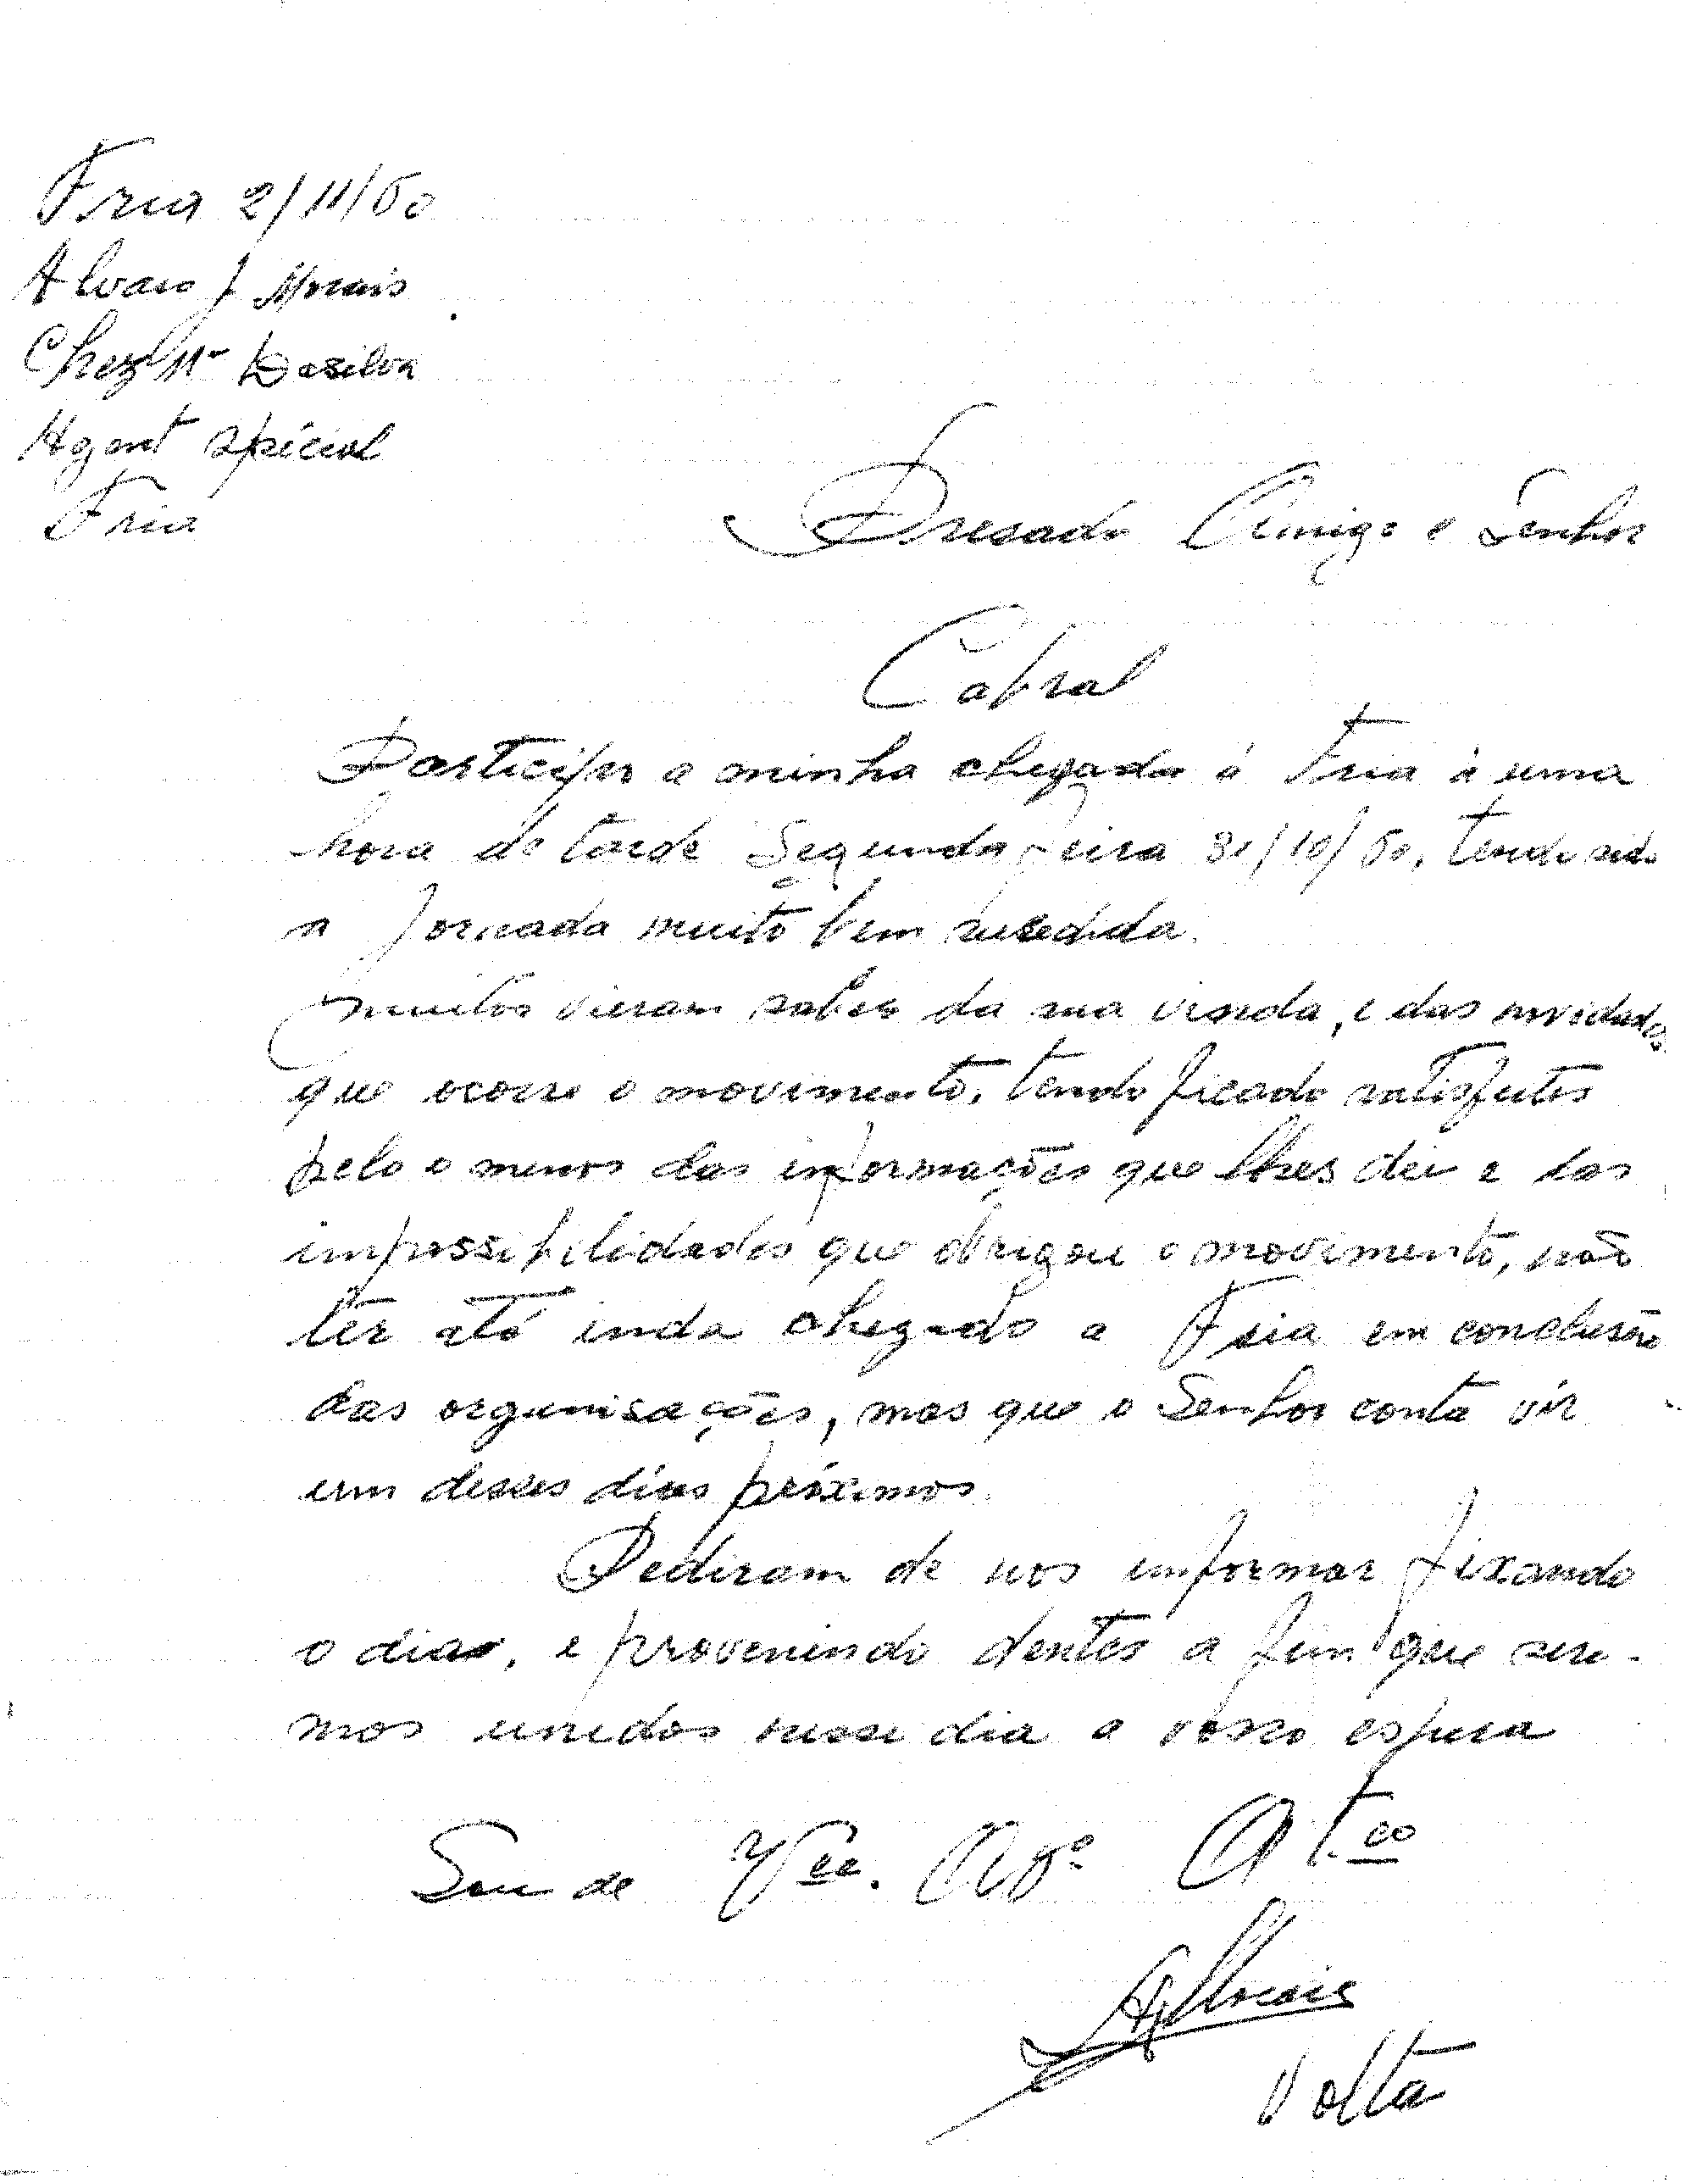 Fria 2/11/60
Alvaro J Morais
Chez Mr Dasilva
Agent spécial
Fria
Presado Amigo e Senhor
Cabral
Participo a minha chegada á Fria à uma
hora de tarde Segunda feira 31/10/60, tendo sido
a Jornada muito bem susedida.
Muitos vieram saber da sua vinda, e das
que ocorre o movimento, tendo ficado satisfeitos
pelo o menos das informações que lhes dei e das
impossibilidades que obrigou o movimento, não
ter até inda chegado a Fria em conclusão
das organisações, mas que o Senhor conta vir
um desses dias próximos.
Pediram de nos informar fixando
o dia, e provenindo dentes a fim que sere-
mos unidos nesse dia a vosso espera
Sou de Vce. Amº At.co
AJMorais
Volta